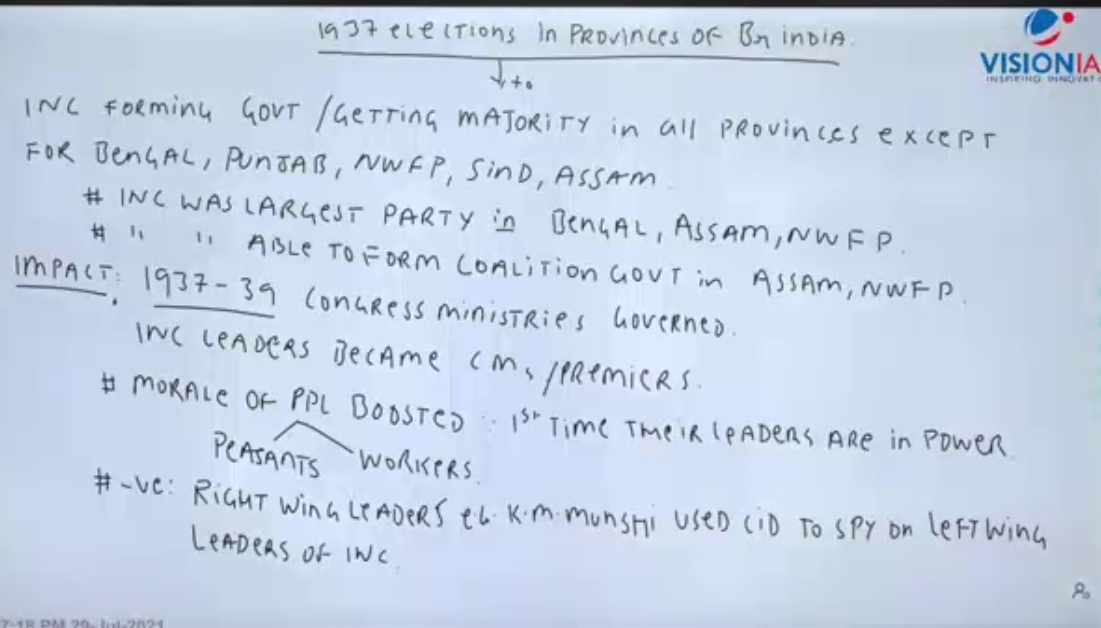 1937 elections in PROVINCES OF Br INDIA.
VISIONIA
INSPIRING INNOVAT
to
INC FORMING GOVT / GETTING MAJORITY in all PROVINCES except
FOR BENGAL, PUNJAB, NWFP, SIND, ASSAM.
# INC WAS LARGEST PARTY in BENGAL, ASSAM, NWFP.
# " " ABLE TO FORM COALITION GOVT in ASSAM, NWFP.
IMPACT: 1937-39 CONGRESS MINISTRIES GOVERNED.
INC LEADERS BECAME CMs / PREMIERS.
# MORALE OF PPL BOOSTED : 1st TIME THEIR LEADERS ARE in POWER
PEASANTS WORKERS.
# -ve: RIGHT WING LEADERS eg. K.M. MUNSHI USED CID TO SPY ON LEFT WING
LEADERS OF INC.
7:18 PM 29-Jul-2021